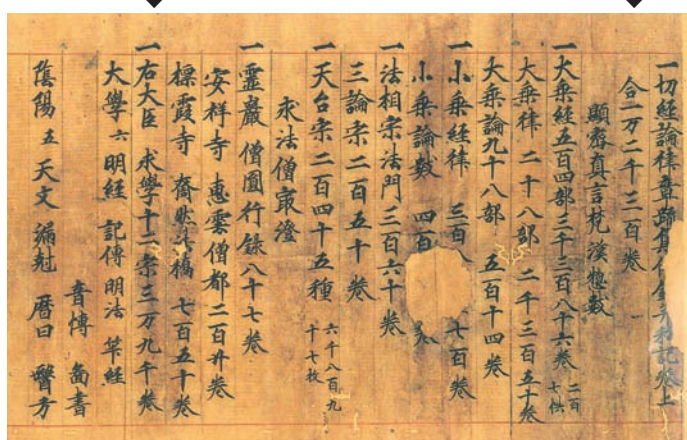 一切経論律章疏集傳録并私記卷上
合二万二千三百卷
顕密真言梵漢惣數
一大乘経五百四部三千三百八十六卷 二百七帙
大乘律 二十八部 二千三百五十卷
大乘論九十八部 五百十四卷
一小乘経律 三百 七百卷
小乘論數 四百 卷
一法相宗法門三百六十卷
三論宗二百五十卷
一天台宗二百四十五種 六千八百九十七枚
求法僧最澄
一霊巖僧圓行錄八十七卷
安祥寺惠雲僧都二百廿卷
標霞寺奝然法橋七百五十卷
一右大臣 求學十二宗三万九千卷
大學六 明経 記傳 明法 筭経
音博 畫書
陰陽五 天文 漏尅 暦日 醫方